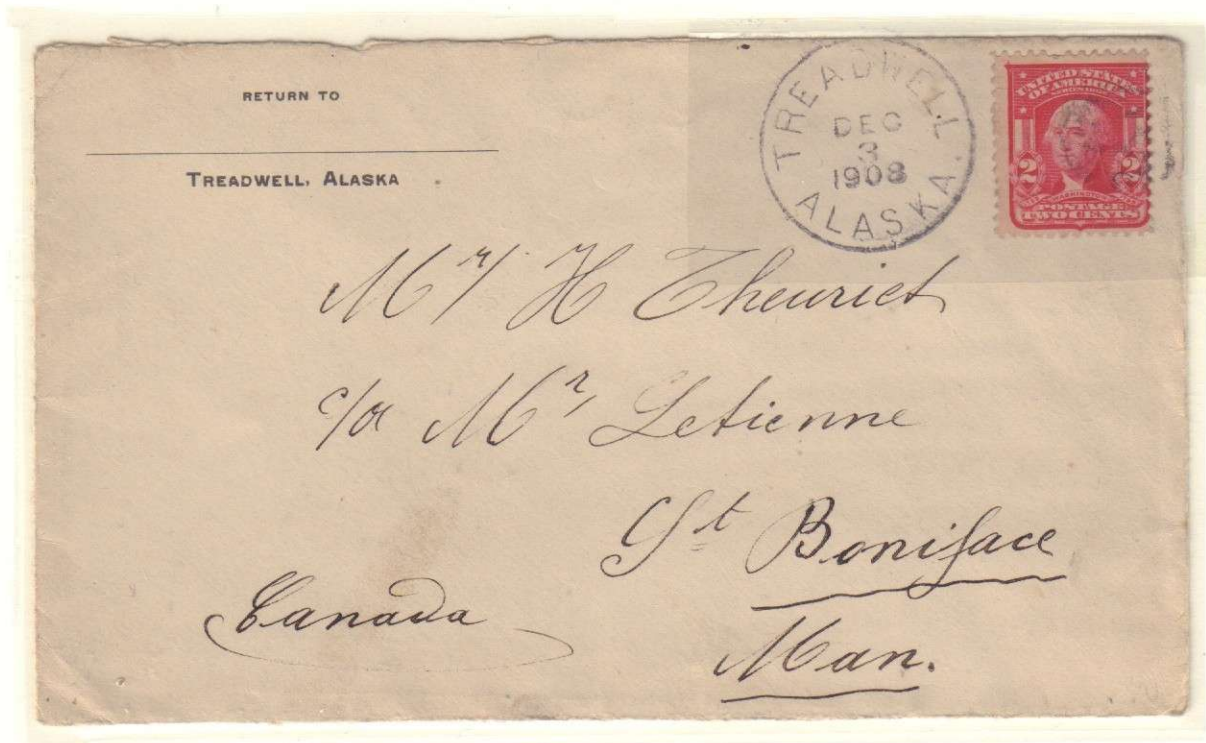 RETURN TO
TREADWELL, ALASKA
TREADWELL
ALASKA.
DEC
3
1908
UNITED STATES
OF AMERICA
2 2
WASHINGTON
POSTAGE
TWO CENTS
Mr H Theuriet
c/o Mr, Letienne
St Boniface
Man.
Canada